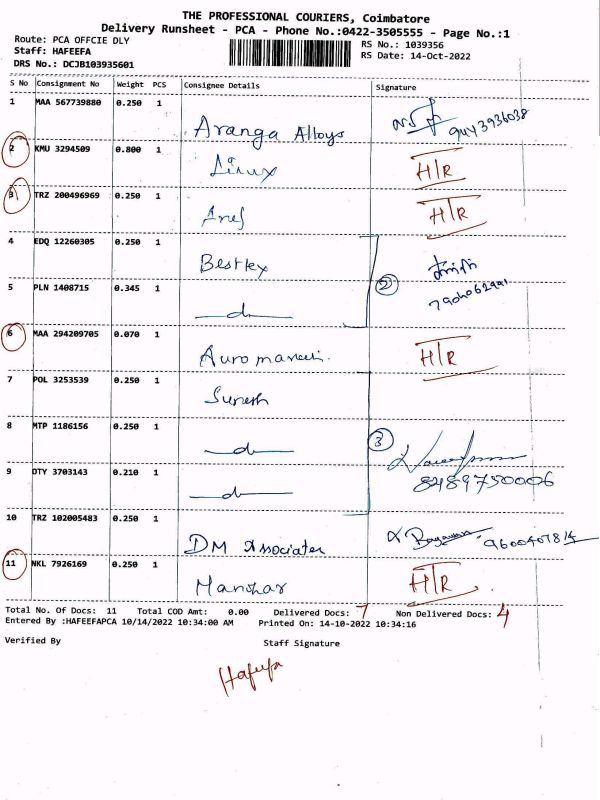 THE PROFESSIONAL COURIERS, Coimbatore
Delivery Runsheet - PCA - Phone No.:0422-3505555 - Page No.:1
Route: PCA OFFCIE DLY
RS No.: 1039356
Staff: HAFEEFA
RS Date: 14-Oct-2022
DRS No.: DCJB103935601
S No Consignment No Weight PCS Consignee Details Signature
1 MAA 567739880 0.250 1 Aranga Alloys
2 KMU 3294509 0.800 1 Linux H/R
3 TRZ 200496969 0.250 1 H/R
4 EDQ 12260305 0.250 1 Bestex
5 PLN 1408715 0.345 1 —d— 2
6 MAA 294209705 0.070 1 Auro H/R
7 POL 3253539 0.250 1 Suresh
8 MTP 1186156 0.250 1 —d— 3
9 OTY 3703143 0.210 1 —d— 8489750006
10 TRZ 102005483 0.250 1 DM Associates
11 NKL 7926169 0.250 1 Manohar H/R
Total No. Of Docs: 11 Total COD Amt: 0.00 Delivered Docs: 7 Non Delivered Docs: 4
Entered By :HAFEEFAPCA 10/14/2022 10:34:00 AM Printed On: 14-10-2022 10:34:16
Verified By Staff Signature
Hafeefa